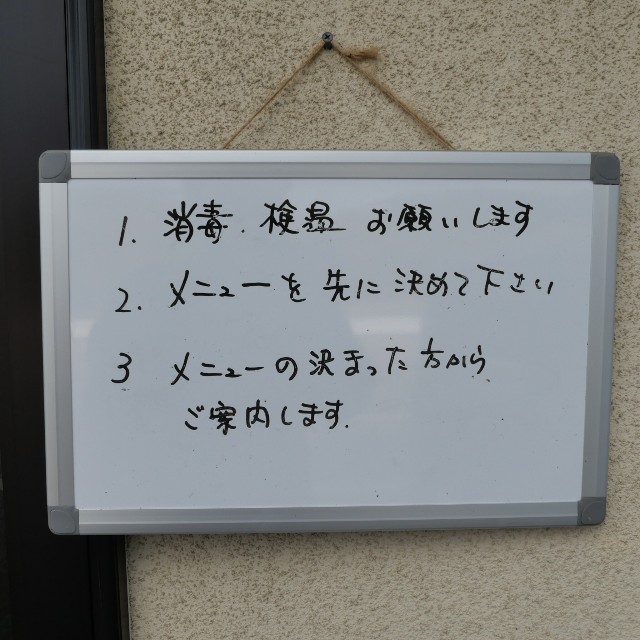 1. 消毒. 検温 お願いします
2. メニューを先に決めて下さい
3 メニューの決まった方から
ご案内します.